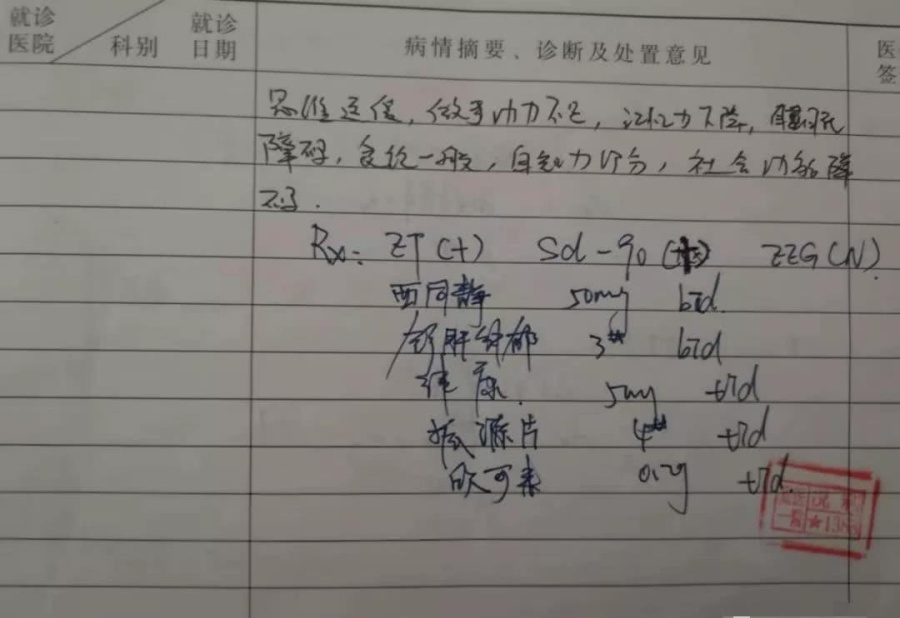 就诊医院
科别
就诊日期
病情摘要、诊断及处置意见
医
签
思维迟缓，做事动力不足，记忆力下降，睡眠
障碍，食纳一般，自知力部分，社会功能障
碍.
Rx: ZT(+) Sd-90 ZZG(N)
西同静 50mg bid.
舒肝解郁 3# bid
5mg tid
振源片 4# tid
欣可来 0.2g tid.